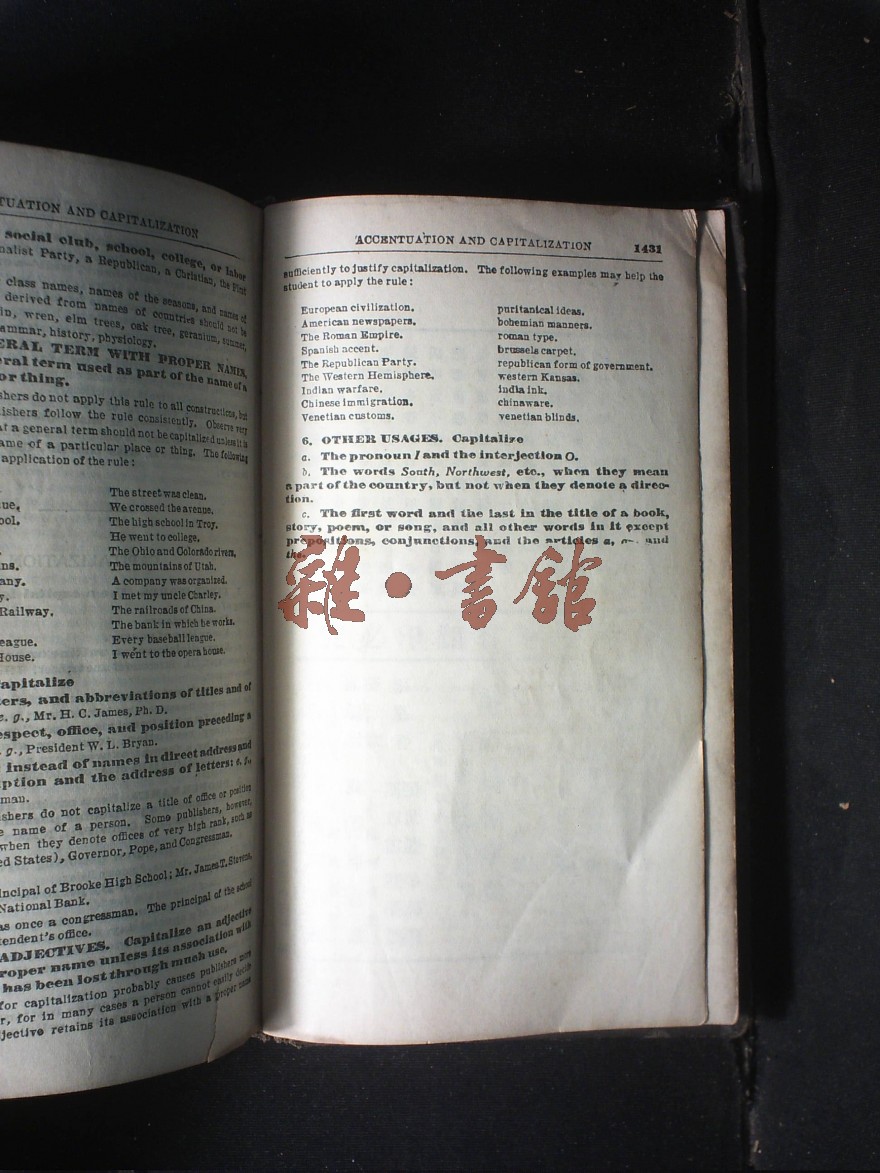 TUATION AND CAPITALIZATION
social club, school, college, or labor
nalist Party, a Republican, a Christian, the First
class names, names of the seasons, and names of
derived from names of countries should not be
in, wren, elm trees, oak tree, geranium, summer,
ammar, history, physiology.
ERAL TERM WITH PROPER NAMES.
ral term used as part of the name of a
or thing.
shers do not apply this rule to all constructions, but
ishers follow the rule consistently. Observe very
at a general term should not be capitalized unless it is
ame of a particular place or thing. The following
application of the rule:
The street was clean.
ue, We crossed the avenue.
ool. The high school in Troy.
He went to college.
The Ohio and Colorado rivers,
ns. The mountains of Utah.
any. A company was organized.
y. I met my uncle Charley.
Railway. The railroads of China.
The bank in which he works.
eague. Every baseball league.
House. I went to the opera house.
apitalize
ters, and abbreviations of titles and of
e. g., Mr. H. C. James, Ph. D.
espect, office, and position preceding a
g., President W. L. Bryan.
instead of names in direct address and
iption and the address of letters: e. g.,
man.
shers do not capitalize a title of office or position
e name of a person. Some publishers, however,
when they denote offices of very high rank, such as
ed States), Governor, Pope, and Congressman.
incipal of Brooke High School; Mr. James T. Stevens,
National Bank.
as once a congressman. The principal of the school
tendent's office.
ADJECTIVES. Capitalize an adjective
roper name unless its association with
has been lost through much use.
for capitalization probably causes publishers more
r, for in many cases a person cannot easily decide
jective retains its association with a proper name
ACCENTUATION AND CAPITALIZATION 1431
sufficiently to justify capitalization. The following examples may help the
student to apply the rule:
European civilization. puritanical ideas.
American newspapers. bohemian manners.
The Roman Empire. roman type.
Spanish accent. brussels carpet.
The Republican Party. republican form of government.
The Western Hemisphere. western Kansas.
Indian warfare. india ink.
Chinese immigration. chinaware.
Venetian customs. venetian blinds.
6. OTHER USAGES. Capitalize
a. The pronoun I and the interjection O.
b. The words South, Northwest, etc., when they mean
a part of the country, but not when they denote a direc-
tion.
c. The first word and the last in the title of a book,
story, poem, or song, and all other words in it except
prepositions, conjunctions, and the articles a, and
the.
雜·書館